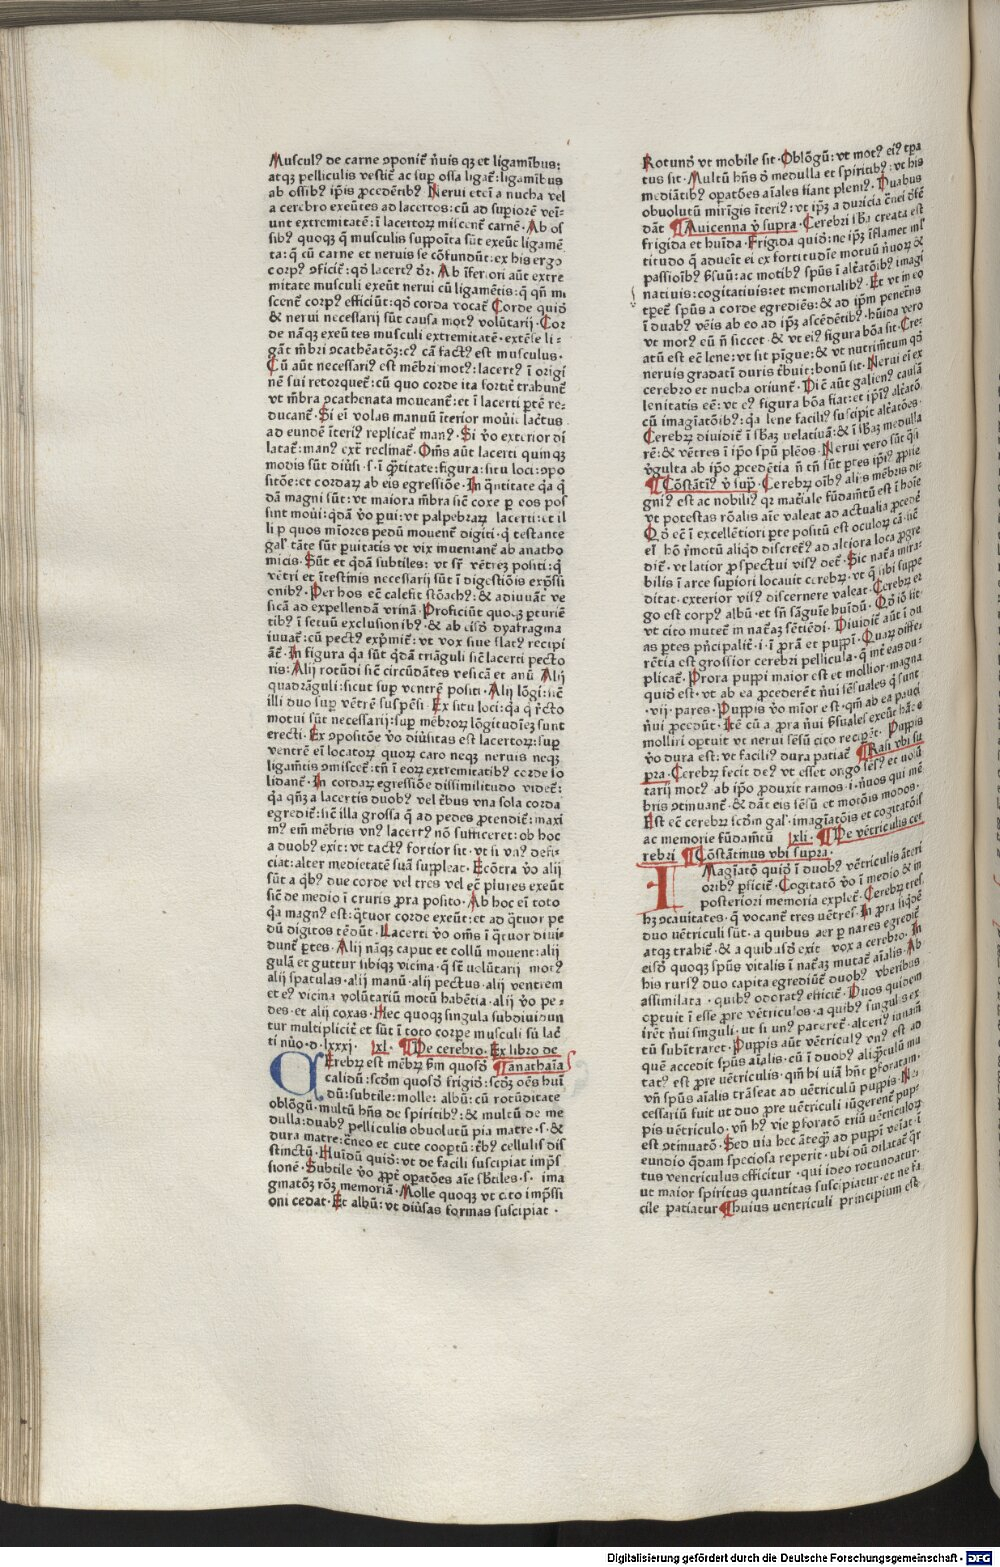 Musculꝰ de carne ↄponit᷑ n̄uis qꝫ et ligamībus:
atqꝫ pelliculis vestit᷑ ac sup̱ ossa ligat᷑: ligamītus
ab ossibꝰ ip̄is ꝓcedētibꝰ Nerui eteī a nucha vel
a cerebro exeūtes ad lacertos: cū ad sup̱iorē veī⸗
unt extremitatē: ī lacertoꝝ miscent᷑ carnē· Ab os
sibꝰ quoqꝫ q̄ musculis supp̄oīta sūt exeūt ligamē
ta: q̄ cū carne et neruis se cōfundūt: ex his ergo
corpꝰ ↄficit᷑: qd̄ lacertꝰ dr̄· Ab īferiori aūt extre
mitate musculi exeūt nerui cū ligamētis: q̄ qn̄ mi
scent᷑ corpꝰ efficiūt: qd̄ corda vocat᷑ Corde quid̄
& nerui necessarij sūt causa motꝰ volūtarij· Cor
de nāqꝫ exeūtes musculi extremitatē· extēse li⸗
gāt mēbri
Cū aūt necessariꝰ est mēbri motꝰ: lacertꝰ ī origi
nē sui retorquet᷑: cū quo corde ita fortit᷑ trahunt᷑
vt mēbra ↄcathenata moueant᷑: et ī lacerti p̱tē re⸗
ducant᷑· Si eī volas manuū īterior moūi lac̄tus
ad eundē īteriꝰ replicat᷑ manꝰ· Si v̄o exterior di
latat᷑: manꝰ ext᷑ reclinat᷑· Om̄s aūt lacerti quinqꝫ
modis sūt diūsi ·s· ī q̄titate: figura: situ loci: ↄpo
sitōe: et cordaꝝ ab eis egressiōe· In q̄ntitate q̄a q̄
dā magni sūt: vt maiora mēbra sic᷑ coxe p̱ eos pos
sint moūi: q̄dā v̄o p̱ui: vt palpebraꝝ lacerti: et il
li p quos mīores pedū mouent᷑ digiti· q̄ testante
gal᷑ tāte sūt p̱uitatis vt vix inueniant᷑ ab anatho
micis· Sūt et q̄dā subtiles: vt sr̄ vētreꝫ positi: q̄
vētri et ītestinis necessarij sūt ī digestiōis exp̄ssi
onibꝰ· Per hos eē calefit stōachꝰ: & adiuuāt᷑ ve
sicā ad expellendā vrinā· Proficiūt quoqꝫ p̱turiē
tibꝰ ī fetuū exclusionibꝰ· & ab eisd̄ dyafragma
iuuat᷑: cū pectꝰ exp̄mit᷑: vt vox siue flatꝰ recipi
āt᷑· In figura q̄a sūt q̄dā triāguli sic᷑ lacerti pecto
ris: Alij rotūdi sic᷑ circūdātes vesicā et anū Alij
quadrāguli: sicut sup̱ ventrē positi· Alij lōgi: sic᷑
illi duo sup̱ vētrē suspēsi Ex situ loci: q̄a q̄ r̄cto
motui sūt necessarij: sup̱ mēbroꝝ lōgitudīeꝫ sunt
erecti· Ex ↄpositōe v̄o diūsitas est lacertoꝝ: sup̱
ventrē eī locatoꝝ quoꝝ caro neqꝫ neruis neqꝫ
ligamētis ↄmiscet᷑: tn̄ ī eoꝝ extremitatibꝰ corde so
lidant᷑· In cordaꝝ egressiōe dissimilitudo videt᷑:
q̄a qn̄qꝫ a lacertis duobꝰ vel t̄bus vna sola corda
egredit᷑: sic᷑ illa grossa q̄ ad pedes ꝓtendit᷑: maxi
mꝰ eī mēbris vnꝰ lacertꝰ nō sufficeret: ob hoc
a duobꝰ exit: vt tactꝰ fortior sit· vt si vnꝰ defi⸗
ciat: alter medietatē suā suppleat· Ecōtra v̄o alij
sūt a q̄bꝰ due corde vel tres vel eē plures exeūt
sic᷑ de medio ī cruris pra posito· Ab hoc eī toto
q̄a magnꝰ est: q̄tuor corde exeūt: et ad q̄tuor pe
dū digitos tēdūt· Lacerti v̄o om̄s ī q̄tuor diui⸗
dunt᷑ p̱tes· Alij nāqꝫ caput et collū mouent: alij
gulā et guttur sibiqꝫ vicina· q̄ st᷑ uolūtarij motꝰ
alij spatulas· alij manū· alij pectus· alij ventrem
et eꝰ vicina volūtariū motū habētia· alij v̄o pe⸗
des· et alij coxas· Hec quoqꝫ singula subdiuidun
tur multiplicit᷑ et sūt ī toto corp̱e musculi sū lac̄
ti nūo·d·lxxxj· lxl· ¶De cerebro· Ex libro de
Cerebꝝ est mēbꝝ s̄m quosd̄ ¶anathaīa
calidū: scd̄m quosd̄ frigid̄: scd̄ꝫ oēs hui
dū: subtile: molle: albū: cū rotūditate
oblōgū· multū hn̄s de spiritibꝰ: & multū de me
dulla: duabꝰ pelliculis obuolutū pia matre ·s· &
dura matre: c̄neo et cute coop̱tū: t̄bꝰ cellulis dis
stinctū· Huidū quid̄: vt de facili suscipiat imp̄s
sionē· Subtile v̄o ꝓpt᷑ op̱atōes aīe sb̄tiles ·s· ima
ginatōꝫ rōꝫ memoriā· Molle quoqꝫ vt cito imp̄ssi
oni cedat· Et albū: vt diūsas formas suscipiat·
Rotund̄ vt mobile sit· Oblōgū: vt motꝰ eiꝰ tp̱a
tus sit· Multū hn̄s d̄ medulla et spiritibꝰ: vt his
mediātibꝰ op̱atōes aīales fiant pleniꝰ· Duabus
obuolutū mirīgis īteriꝰ: vt ip̄ꝫ a duricia c̄nei
dāt ¶Auicenna v̄ supra· Cerebri sb̄a creata est
frigida et huīda· Frigida quid̄: ne ip̄ꝫ īflamet
titudo q̄ adueīt ei ex fortitudīe motuū n̄uoꝝ &
passioībꝰ s̄suū: ac motibꝰ sp̄us ī alt᷑atōibꝰ imagi
natiuis: cogitatiuis: et memorialibꝰ· Et vt in eo
tp̱et᷑ sp̄us a corde egrediēs: & ad ip̄m penet̄ns
ī duabꝰ vēis ab eo ad ip̄ꝫ ascēdētibꝰ· hūida vero
vt motꝰ eū n̄ siccet· & vt eiꝰ figura bōa sit· Cre⸗
atū est eē lene: vt sit pīgue: & vt nutrim̄tum qd̄
neruis gradatī duris t̄buit: bonū sit· Nerui eī ex
cerebro et nucha oriunt᷑· Dic᷑ aūt galienꝰ causā
lenitatis eē: vt eꝰ figura bōa fiat: et ip̄iꝰ alt᷑atō
cū imagīatōibꝰ: q̄a lene faciliꝰ suscipit alt᷑atōes·
Cerebꝝ diuidit᷑ ī sb̄aꝫ velatiuā: & ī sb̄aꝫ medulla
rē: & vētres ī ip̄o sp̄u plēos· Nerui vero sūt q̄si
v̄gulta ab ip̄o ꝓcedētia n̄ tn̄ sūt p̱tes ip̄iꝰ ꝓprie
¶Cōstātīꝰ v̄ sup̱· Cerebꝝ oībꝰ alijs mēbris di⸗
gniꝰ est ac nobiliꝰ qꝛ mat᷑iale fūdam̄tū est ī hoīe
vt potestas rōalis aīe valeat ad actualia ꝓcedē
Qd̄ eē ī excellētiori p̱te positū est oculoꝝ cā: sic᷑
eī hō r̄motū aliqd̄ discret᷑ꝰ ad altiora loca ꝓgre
dit᷑· vt latior ꝓspectui visꝰ det᷑· Sic nat᷑a mira⸗
bilis ī arce sup̱iori locauit cerebꝝ· vt q̄ sibi suppe
ditat· exterior visꝰ discernere valeat· Cerebꝝ er
go est corpꝰ albū· et sn̄ sāguīe huīdū· Qd̄ iō sit·
vt cito mutet᷑ in nat᷑aꝫ sētiēdi· Diuidit᷑ aūt ī du
as p̱tes pn̄cipalit᷑ ·i· ī prā et puppī· Quaꝝ diffe
rētia est grossior cerebri pellicula· q̄ mr̄ eas du⸗
plicat᷑· Prora puppi maior est et mollior· magna
quid̄ est· vt ab ea ꝓcederēt n̄ui sēsuales q̄ sunt
·vij· pares· Puppis v̄o mīor est· qm̄ ab ea pauci
n̄ui ꝓcedūt· Itē cū a pra n̄ui s̄suales exeūt
molliri optuit vt nerui sēsū cito recip̱ēt· Puppis
v̄o dura est: vt faciliꝰ dura patiat᷑ ¶Rasi vbi su
pra· Cerebꝝ fecit deꝰ vt esset origo sēsꝰ et uolū
tarij motꝰ ab ip̄o ꝓduxit ramos ·i· n̄uos qui mē
bris ↄtinuant᷑· & dāt eis sēsū et motōis modos·
Est eē cerebꝝ scd̄m gal᷑ imagīatōis et cogitatōis
ac memorie fūdam̄tū lxli· ¶De vētriculis cer
rebri ¶Cōstātinus vbi supra·
IMagīatō quid̄ ī duobꝰ vētriculis āteri
oribꝰ p̱ficit᷑· Cogitatō v̄o ī medio & in
posteriori memoria explet᷑· Cerebꝝ tres
hꝫ ↄcauitates· q̄ vocant᷑ tres vētres· In pra siq̄dē
duo vētriculi sūt· a quibus aer p̱ nares egredit᷑
atqꝫ trahit᷑· & a quib᷒ exit vox a cerebro· In
eisd̄ quoqꝫ sp̄us vitalis ī nat᷑aꝫ mutat᷑ aīalis· Ab
his rursꝰ duo capita egrediūt᷑ duobꝰ vberibus
assimilata· quibꝰ odoratꝰ efficit᷑· Duos quidem
optuit ī esse pre vētriculos· a quibꝰ singulis ex
irēt n̄ui singuli· ut si unꝰ pareret᷑· alteriꝰ iuuam̄
tū subītraret· Puppis aūt vētriculꝰ vnꝰ est ad
quē accedit sp̄us aīalis· cū ī duobꝰ
tatꝰ est pre vētriculis· qm̄ hi uiā hn̄t ꝑforatam·
vn̄ sp̄us aīalis trāseat ad vētriculū puppis· Ne
cessariū fuit ut duo pre vētriculi iūgerent᷑ pup⸗
pis vētriculo· vn̄ hꝰ vie p̱foratō triū vētriculoꝝ
est ↄtinuatō· Sed via hec āteqꝫ ad puppī veiat· ī
eundio q̄dam speciosa reperit᷑· ubi dū dilatat᷑ q̄r
tus venriculus efficitur· qui ideo rotundatur·
ut maior spiritus quantitas suscipiatur· et ne fa
cile patiatur ¶huius uentriculi principium est
Digitalisierung gefördert durch die Deutsche Forschungsgemeinschaft · DFG